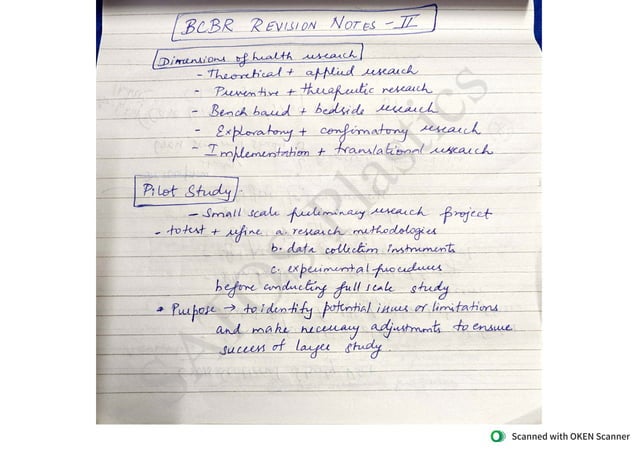 BCBR REVISION NOTES - II
Dimensions of health research
- Theoretical + applied research
- Preventive + therapeutic research
- Bench based + bedside research
- Exploratory + confirmatory research
- Implementation + translational research
Pilot Study
- Small scale preliminary research project
- to test + refine a. research methodologies
b. data collection instruments
c. experimental procedures
before conducting full scale study
* Purpose → to identify potential issues or limitations
and make necessary adjustments to ensure
success of larger study.
Plastics
Scanned with OKEN Scanner